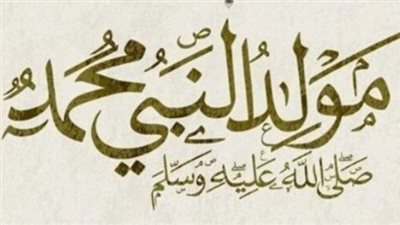 مَوْلِدُ النَّبِيِّ مُحَمَّد
صَلَّى اللَّهُ عَلَيْهِ وَسَلَّمَ